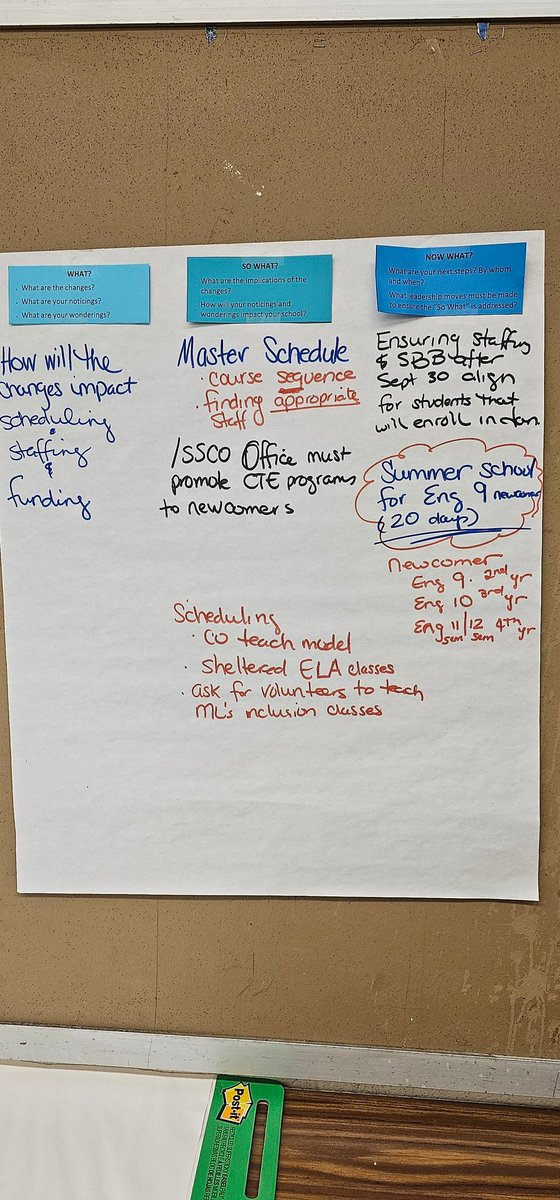 WHAT?
What are the changes?
What are your noticings?
What are your wonderings?
How will the
changes impact
scheduling
staffing
&
funding
SO WHAT?
What are the implications of the
changes?
How will your noticings and
wonderings impact your school?
Master Schedule
· course sequence
· finding appropriate
staff
ISSCO Office must
promote CTE programs
to newcomers
Scheduling
· co teach model
· sheltered ELA classes
· ask for volunteers to teach
ML's inclusion classes
NOW WHAT?
What are your next steps? By whom
and when?
What leadership moves must be made
to ensure the "So What" is addressed?
Ensuring staffing
& SBB after
Sept 30 align
for students that
will enroll in
Summer school
for Eng 9 newcomer
(20 days)
newcomer
Eng 9 · 2nd yr
Eng 10 3rd yr
Eng 11/12 4th yr
sem sem
Post-it